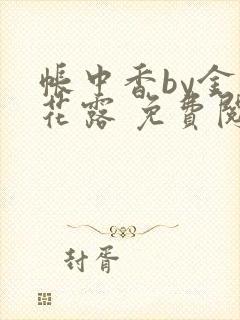 帳中香by金
花露 免費閱
封胥